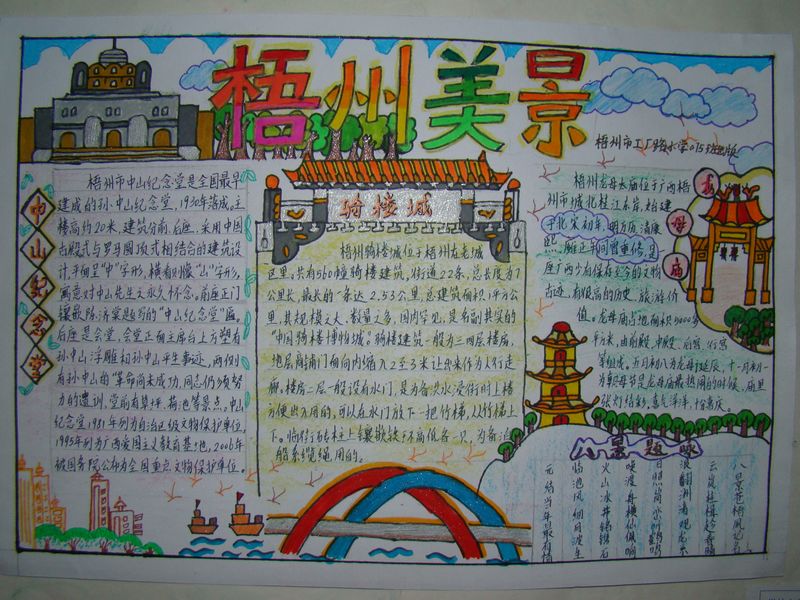 梧州美景
梧州市工厂路小学015班出版
中山纪念堂
梧州市中山纪念堂是全国最早
建成的孙中山纪念堂，1930年落成。主
楼高约20米，建筑分前、后座，采用中
古殿式与罗马圆顶式相结合的建筑设
计，平面呈"中"字形，横看则像"山"字形，
寓意对中山先生之永久怀念。前座正门
镶嵌陈济棠题写的"中山纪念堂"匾。
后座是会堂，会堂正面主席台上方塑有
孙中山浮雕和孙中山平生事迹，两侧
有孙中山的"革命尚未成功，同志仍须努
力"的遗训，堂前有草坪、荷池等景点。中山
纪念堂1981年列为自治区级文物保护单位，
1995年列为广西爱国主义教育基地，2006年
被国务院公布为全国重点文物保护单位。
骑楼城
梧州骑楼城位于梧州在老城
区里。共有560幢骑楼建筑，街道22条，总长度为7
公里长，最长的一条达2.53公里，总建筑面积1平方公
里，其规模之大、数量之多，国内罕见，是名副其实的
"中国骑楼博物城"。骑楼建筑一般为三四层楼房，
地层商铺门面向内缩入2至3米让出来作为人行走
廊，楼房二层一般设有水门，是为备洪水浸街时上楼
方便出入用的，可以在水门放下一把竹梯，从竹梯上
下。临街砖柱上镶嵌铁环高低各一只，为备洪
船系缆绳用的。
龙母庙
梧州龙母太庙位于广西梧
州市城北桂江东岸，始建
于北宋初年，明万历、清康
熙、雍正年间曾重修，是
座广西少有保存至今的文物
古迹，有很高的历史、旅游价
值。龙母庙占地面积5000多
平方米，由前殿、中殿、后宫、行宫
等组成。五月初八为龙母诞辰，十一月初一
为朝母节是龙母庙最热闹的时候，庙里
张灯结彩，喜气洋洋，恰喜庆。
八景题咏
八景苍梧夙记名
云岚桂
火山冰井锦鳞石